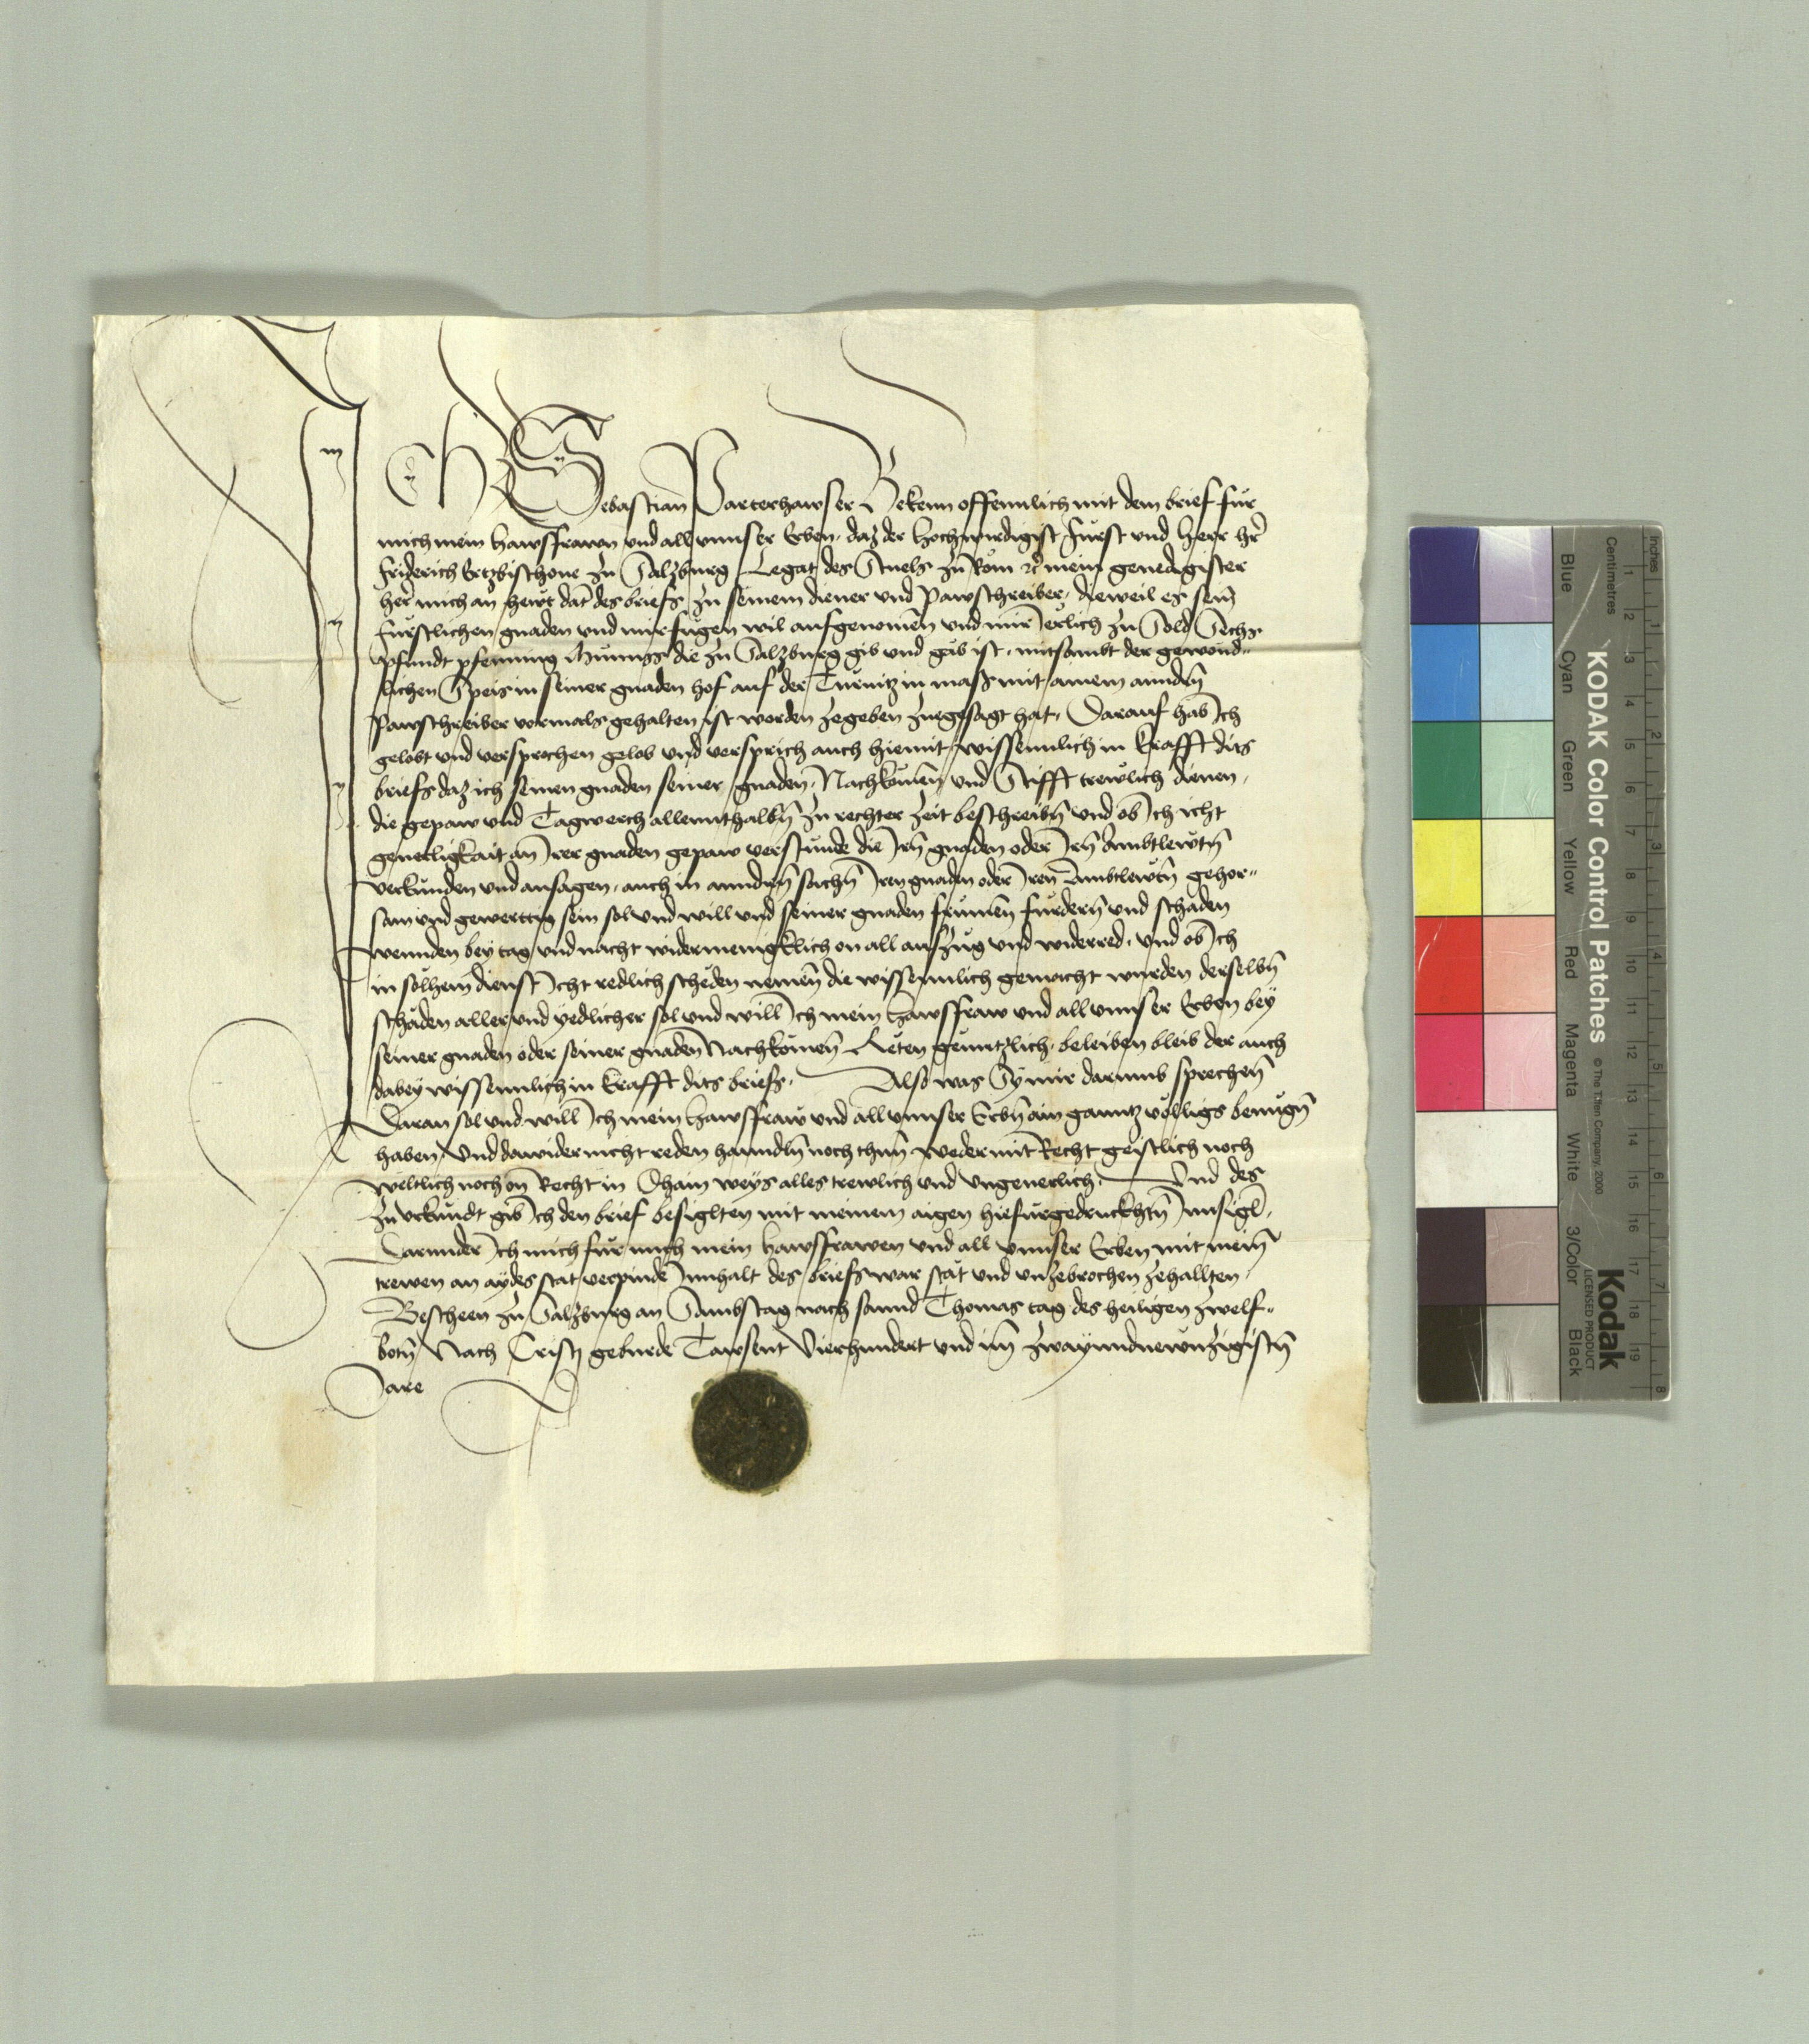 ICH Sebastian Parterhawser Bekenn offennlich mit dem brief für
mich mein hawsfrawn vnd all vnnser Erben, daz der hochwirdigist Fürst vnd Herr hr̄
Friderich Ertzbischoue zu Saltzburg Legat des Stuels zu Rom ꝛc mein genedigister
her mich an hewt dat des briefs zu seinem diener vnd Pawschreiber, dieweil es sein
fürstlichen gnaden vnd mir fuegen wil aufgenomen vnd mir Jerlich zu Sold Sechs
pfundt pfenning Münnss die zu Saltzburg gib vnd gäb ist, mitsambt der gewond„
lichen Speis in seiner gnaden hof auf der Türnitz in mass mit ainem anndn̄
Pawschreiber vormals gehalten ist worden zegeben zuegesagt hat, Darauf hab Ich
gelobt vnd versprochen gelob vnd versprich auch hiemit wissennlich in krafft dits
briefs daz ich seinen gnaden seiner gnaden Nachkomen̄ vnd Stifft trewlich dienen,
die gepaw vnd Tagwerch allennthalbn̄ zu rechter Zeit beschreibn̄ vnd ob Ich icht
geuerligkait an Irer gnaden gepaw verstünde die Irn̄ gnaden oder Irn̄ Ambtlewtn̄
verkünden vnd ansagen, auch in anndern̄ sachn̄ Iren gnaden oder Iren̄ Ambtlewtn̄ gehor„
sam vnd gewerttig sein sol vnd will vnd seiner gnaden frümen̄ fürdern̄ vnd schaden
wennden bey tag vnd nacht widermenigklich on all aufzug vnd widerred, vnd ob Ich
in solhem dienst Icht redlich scheden nemen̄ die wissennlich gemacht wurden derselbn̄
schäden aller vnd yedlicher sol vnd will Ich mein hawsfraw vnd all vnnser Erben bey
seiner gnaden oder seiner gnaden Nachkomen̄ Reten genntzlich, beleiben bleib der auch
dabey wissennlich in krafft dits briefs, Also was Sy mir darumb sprechen̄
Daran sol vnd will Ich mein hawsfraw vnd all vnnser Erbn̄ ain ganntz völligs benügn̄
haben, Vnd dawider nicht reden hanndln̄ noch thun̄ weder mit Recht geistlich noch
weltlich noch on̄ Recht in khain weys alles trewlich vnd vngeuerlich, Vnd des
zu vrkundt gib Ich den brief besiglten mit meinem aigen hiefürgedruckhtn̄ Innsigl,
Darunder Ich mich für mich mein hawsfrawen vnd all vnnser Erben mit mein̄
trewen an aydes stat verpinde Innhalt des briefs war stät vnd vnzebrochen zehallten,
Bescheen zu Saltzburg an Sambstag nach sannd Thomas tag des heiligen zwelf„
botn̄ Nach Cristj geburde Tawsent Vierhundert vnd im̄ zwayundnewnzigistn̄
Jare
KODAK Color Control Patches © The Tiffen Company, 2000
Kodak
LICENSED PRODUCT
Inches
Centimetres
Blue Cyan Green Yellow Red Magenta White 3/Color Black
1 2 3 4 5 6 7 8 9 10 11 12 13 14 15 16 17 18 19
1 2 3 4 5 6 7 8